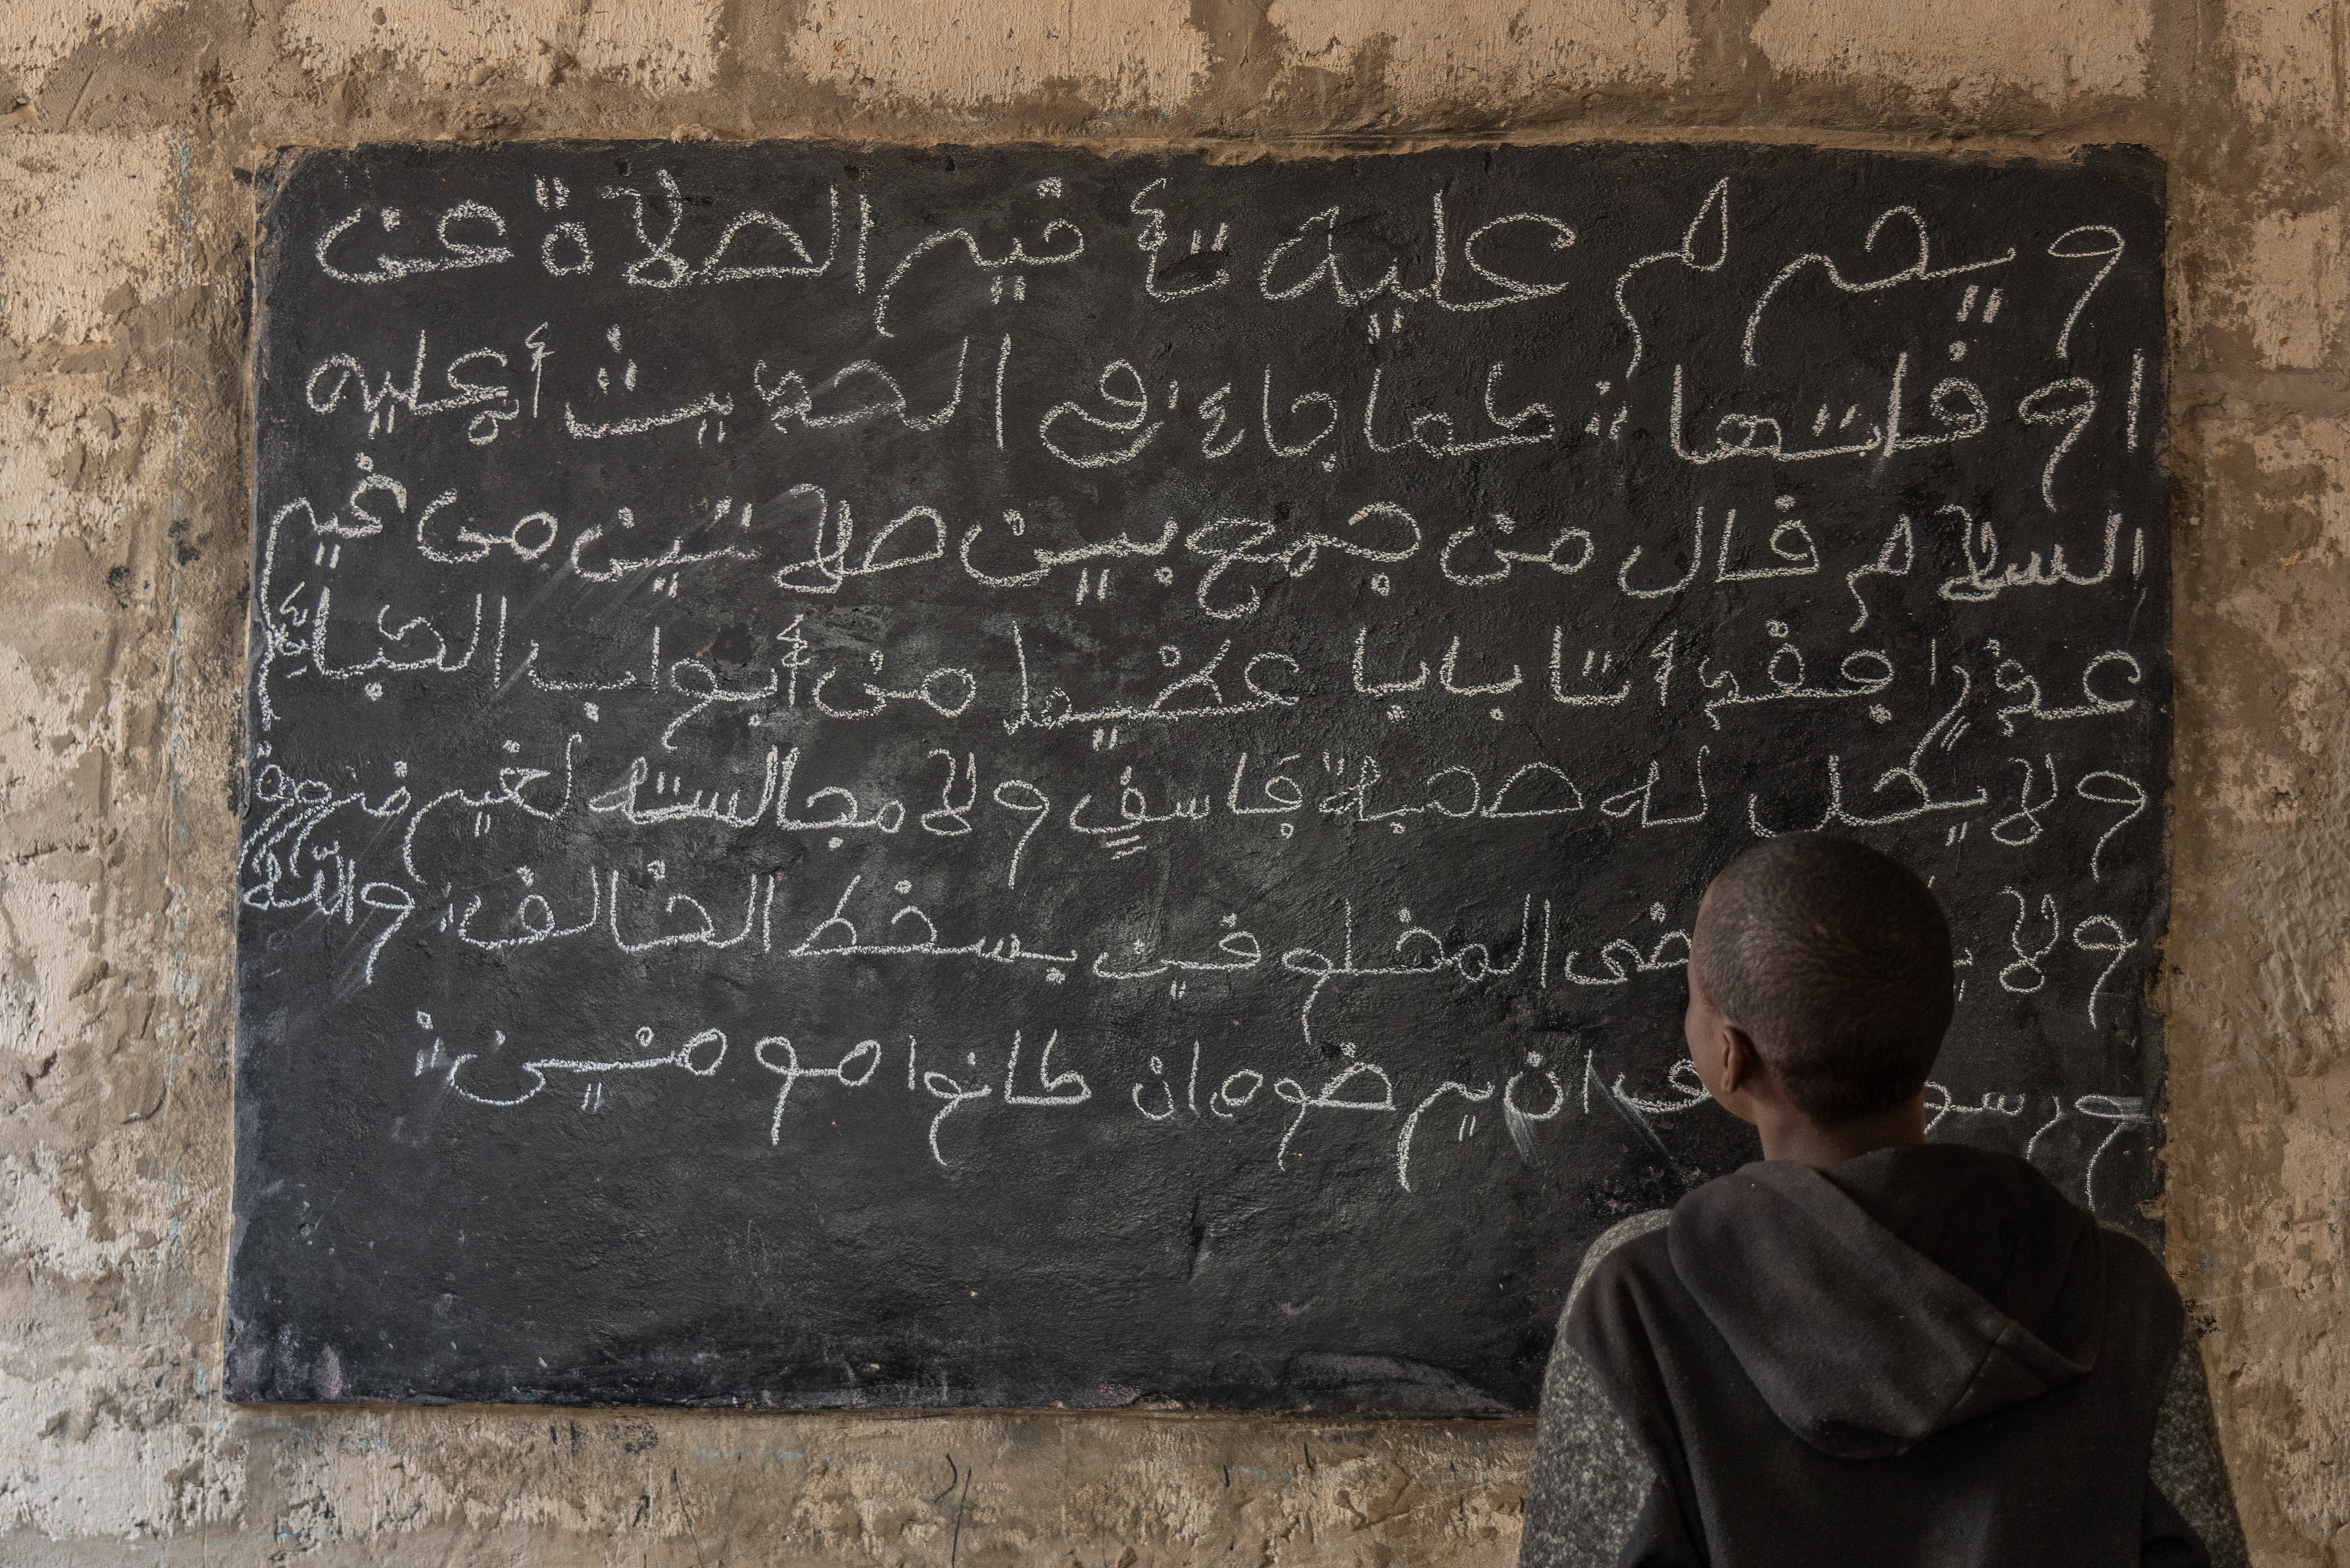 ويحرم عليه تأخير الصلاة عن
اوقاتها كما جاء في الحديث أنه عليه
السلام قال من جمع بين صلاتين من غير
عذر فقد أتا بابا عظيما من أبواب الكبائر
ولا يحل له صحبة فاسق ولا مجالسته لغير ضرورة
ولا المخلوقين بسخط الخالق والله
ان يرضوه ان كانوا مومنين